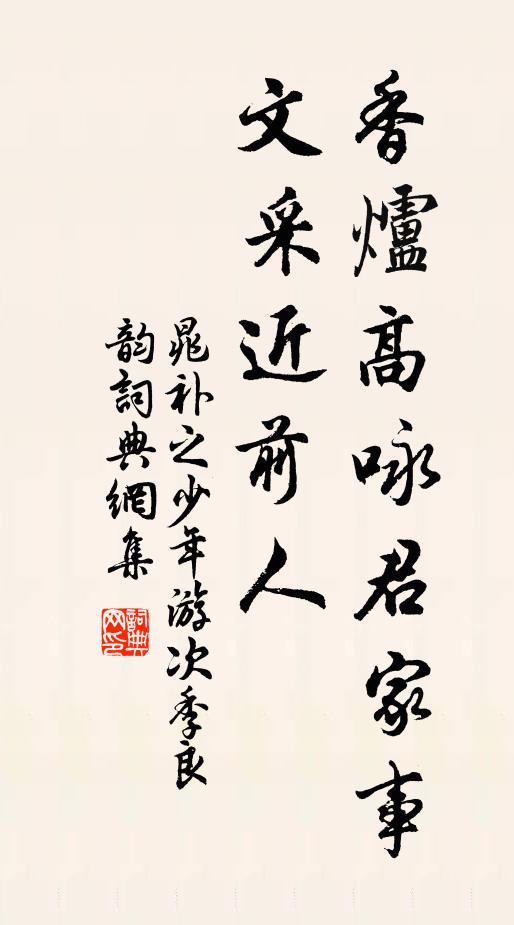 香爐高咏君家事
文采近前人
晁补之少年游次季良
韵詞典網集
詞典網印